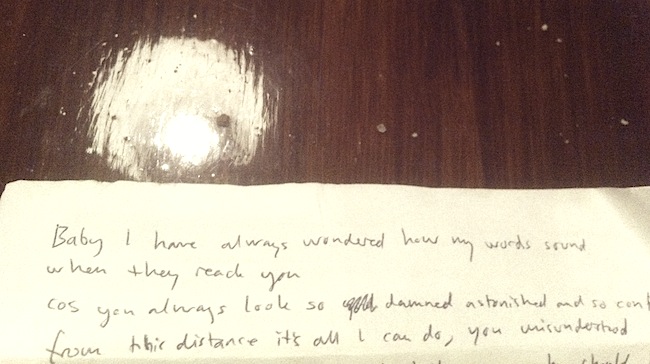 Baby I have always wondered how my words sound
when they reach you
cos you always look so damned astonished and so
from this distance it's all I can do, you misunderstood